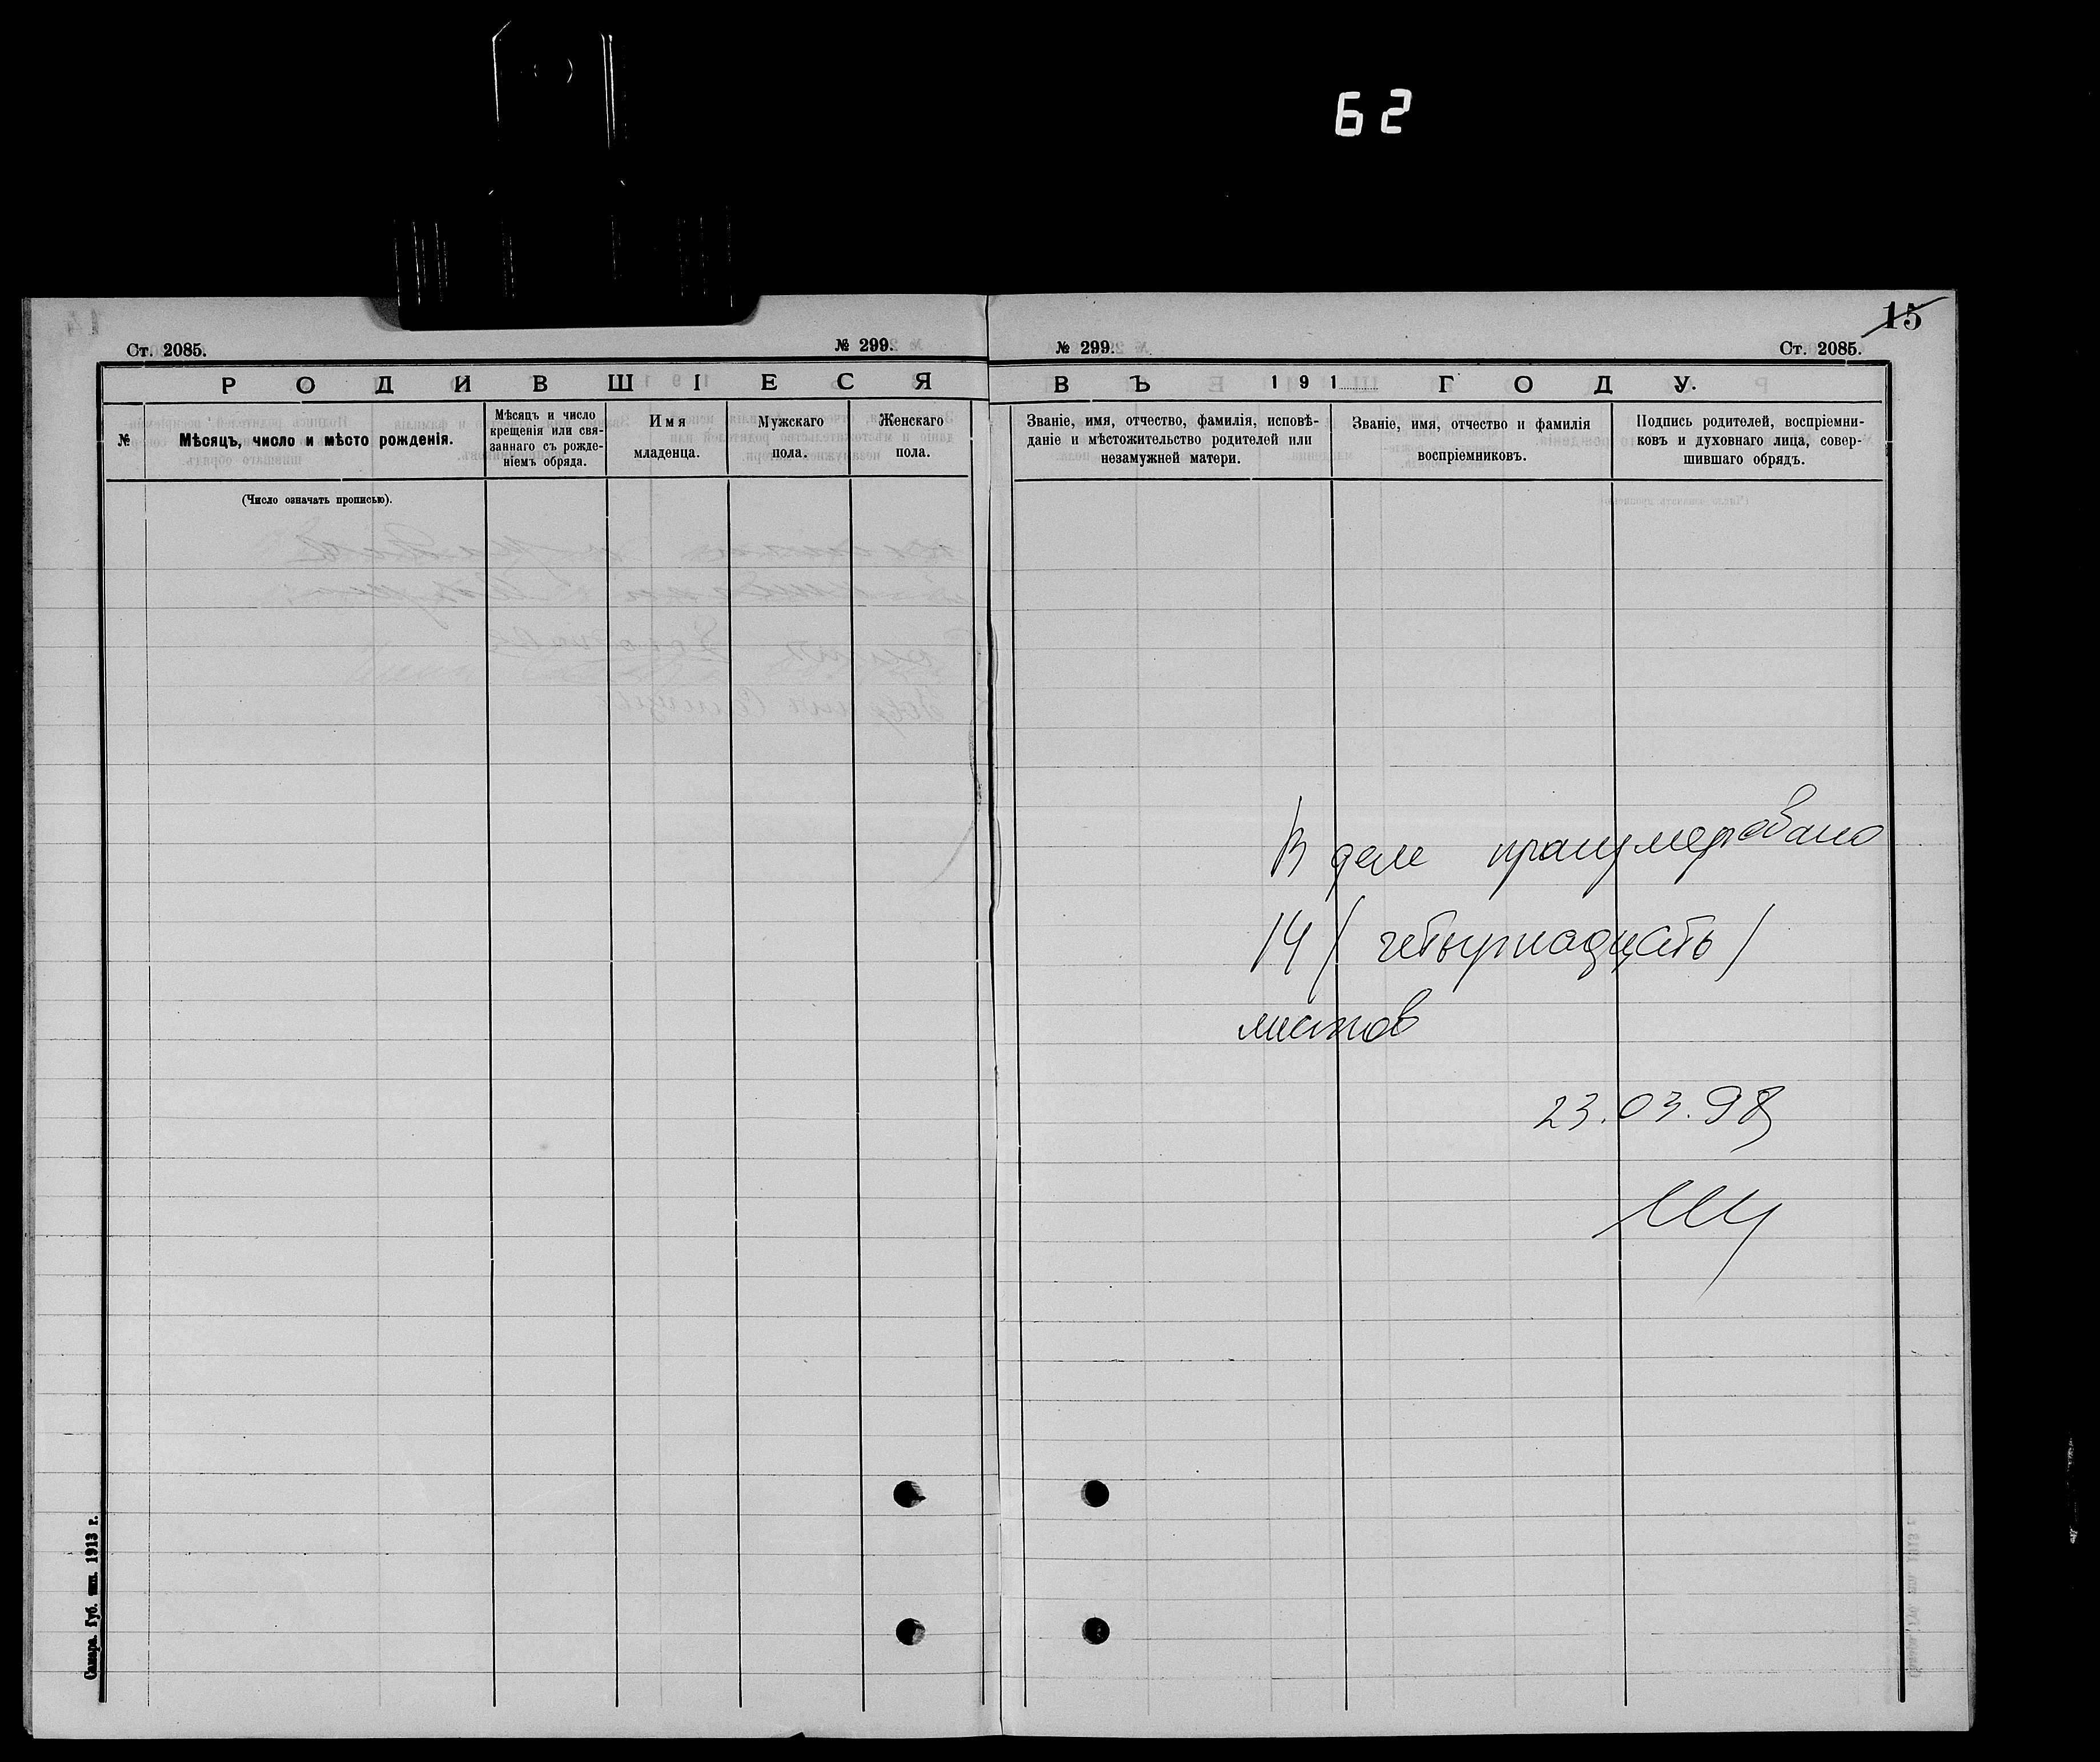 62
15
Ст. 2085.
№ 299.
Р О Д И В Ш І Е С Я
№
Мѣсяцъ, число и мѣсто рожденія.
Мѣсяцъ и число
крещенія или свя-
заннаго съ рожде-
ніемъ обряда.
Имя
младенца.
Мужскаго
пола.
Женскаго
пола.
(Число означать прописью).
Самара. Губ. тип. 1913 г.
№ 299.
Ст. 2085.
В Ъ 191 Г О Д У.
Званіе, имя, отчество, фамилія, исповѣ-
даніе и мѣстожительство родителей или
незамужней матери.
Званіе, имя, отчество и фамилія
воспріемниковъ.
Подпись родителей, воспріемни-
ковъ и духовнаго лица, совер-
шившаго обрядъ.
В деле пронумеровано
14 / четырнадцать /
листов
23.03.98